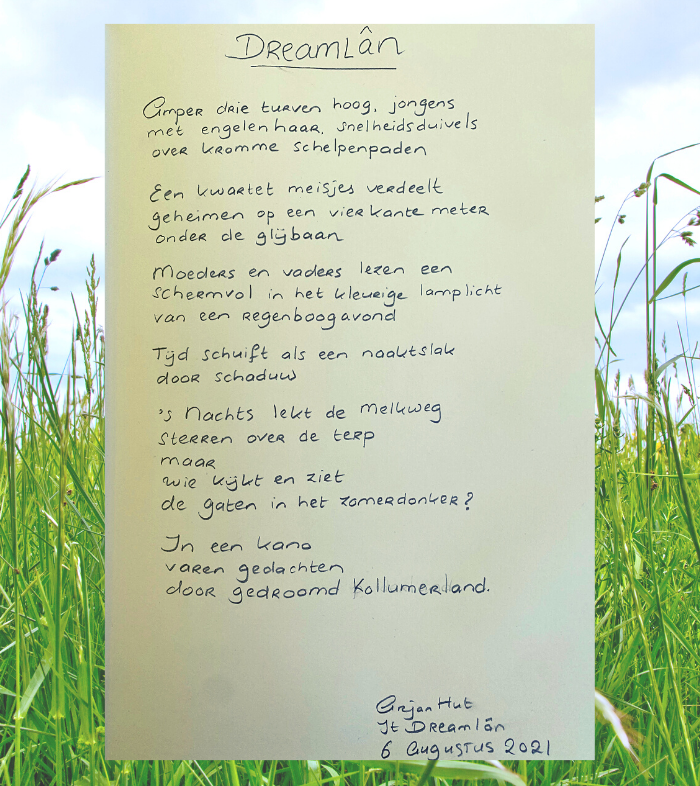 DREAMLÂN
Amper drie turven hoog, jongens
met engelenhaar, snelheidsduivels
over kromme schelpenpaden
Een kwartet meisjes verdeelt
geheimen op een vierkante meter
onder de glijbaan
Moeders en vaders lezen een
schermvol in het kleurige lamplicht
van een regenboogavond
Tijd schuift als een naaktslak
door schaduw
's Nachts lekt de melkweg
sterren over de terp
maar
wie kijkt en ziet
de gaten in het zomerdonker?
In een kano
varen gedachten
door gedroomd Kollumerland.
Arjan Hut
It Dreamlân
6 augustus 2021